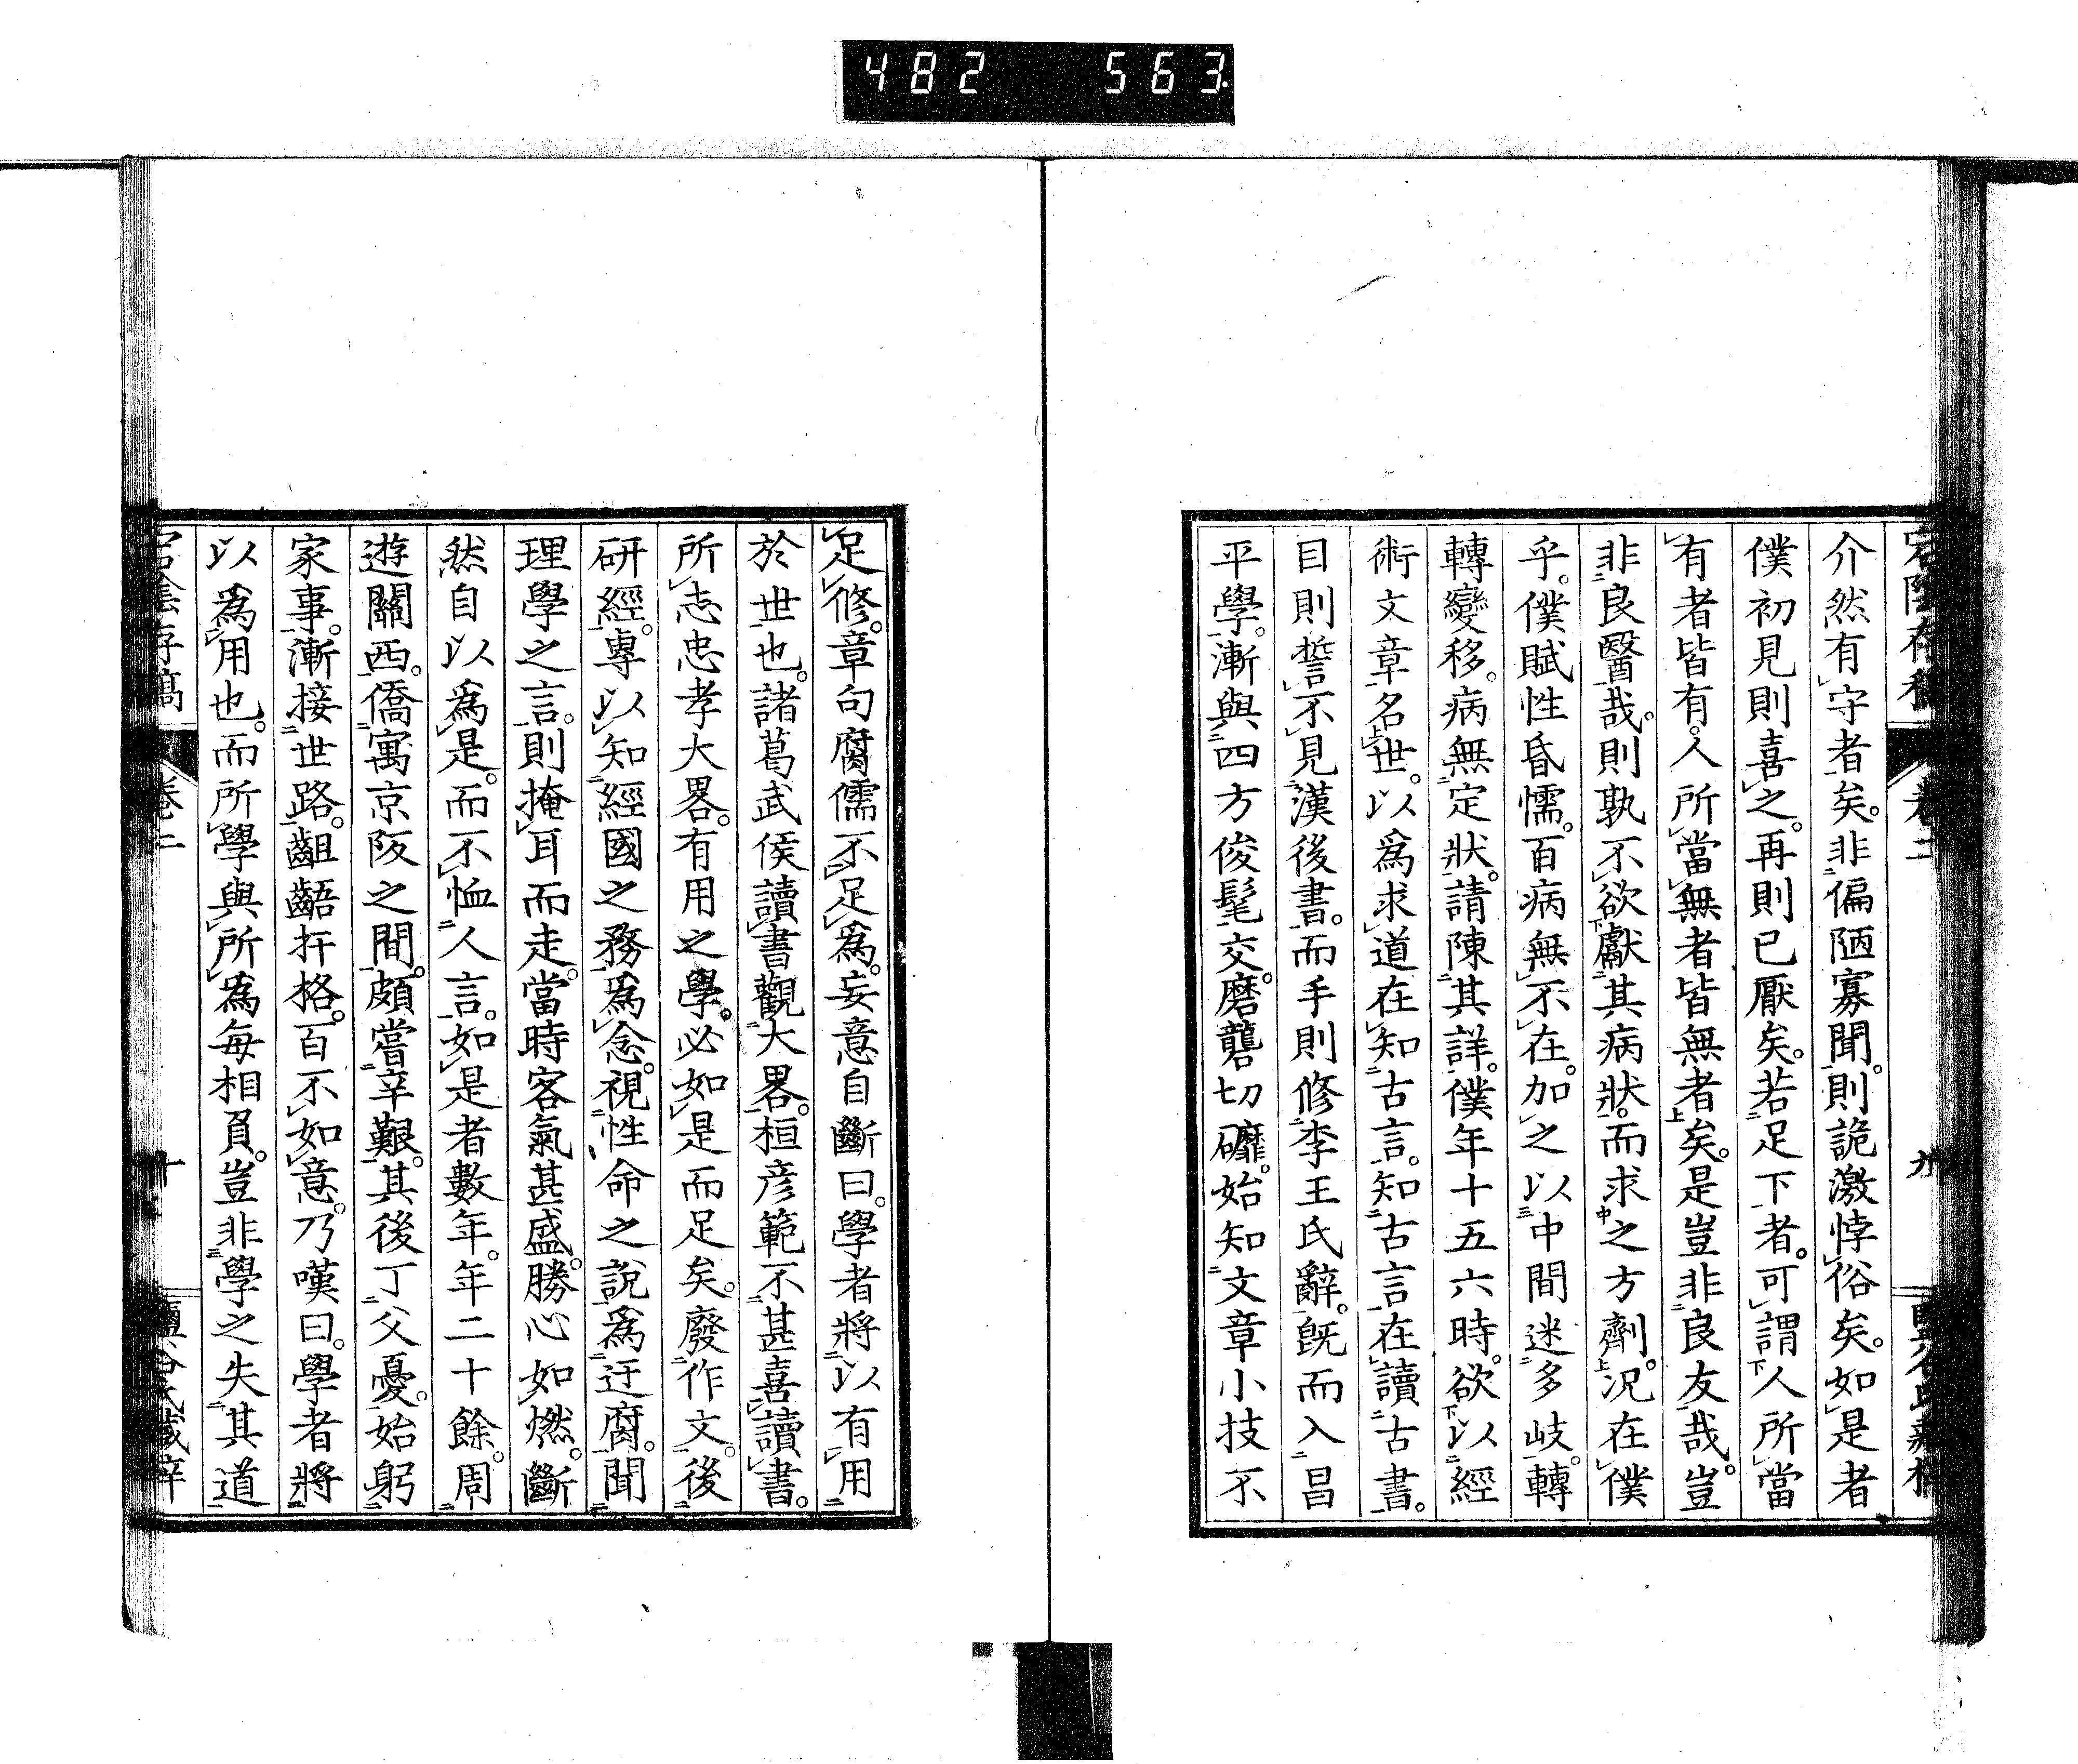 482 563
介然有守者矣。非偏陋寡聞。則詭激悖俗矣。如是者
僕初見則喜之。再則已厭矣。若足下者。可謂人所當
有者皆有。人所當無者皆無者矣。是豈非良友哉。豈
非良醫哉。則孰不欲獻其病狀。而求之方劑。況在僕
乎。僕賦性昏懦。百病無不在。加之以中間迷多岐。轉
轉變移。病無定狀。請陳其詳。僕年十五六時。欲以經
術文章名世。以為求道在知古言。知古言在讀古書。
目則誓不見漢後書。而手則修李王氏辭。既而入昌
平學。漸與四方俊髦交。磨礱切礳。始知文章小技不
足修。章句腐儒不足為。妄意自斷曰。學者將以有用
於世也。諸葛武侯讀書觀大畧。桓彦範不甚喜讀書。
所志忠孝大畧。有用之學。必如是而足矣。廢作文。後
研經。專以知經國之務為念。視性命之說為迂腐。聞
理學之言。則掩耳而走。當時客氣甚盛。勝心如燃。斷
然自以為是。而不恤人言。如是者數年。年二十餘。周
遊關西。僑寓京阪之間。頗嘗辛艱。其後丁父憂。始躬
家事。漸接世路。齟齬扞格。百不如意。乃嘆曰。學者將
以為用也。而所學與所為每相負。豈非學之失其道
卷二 十